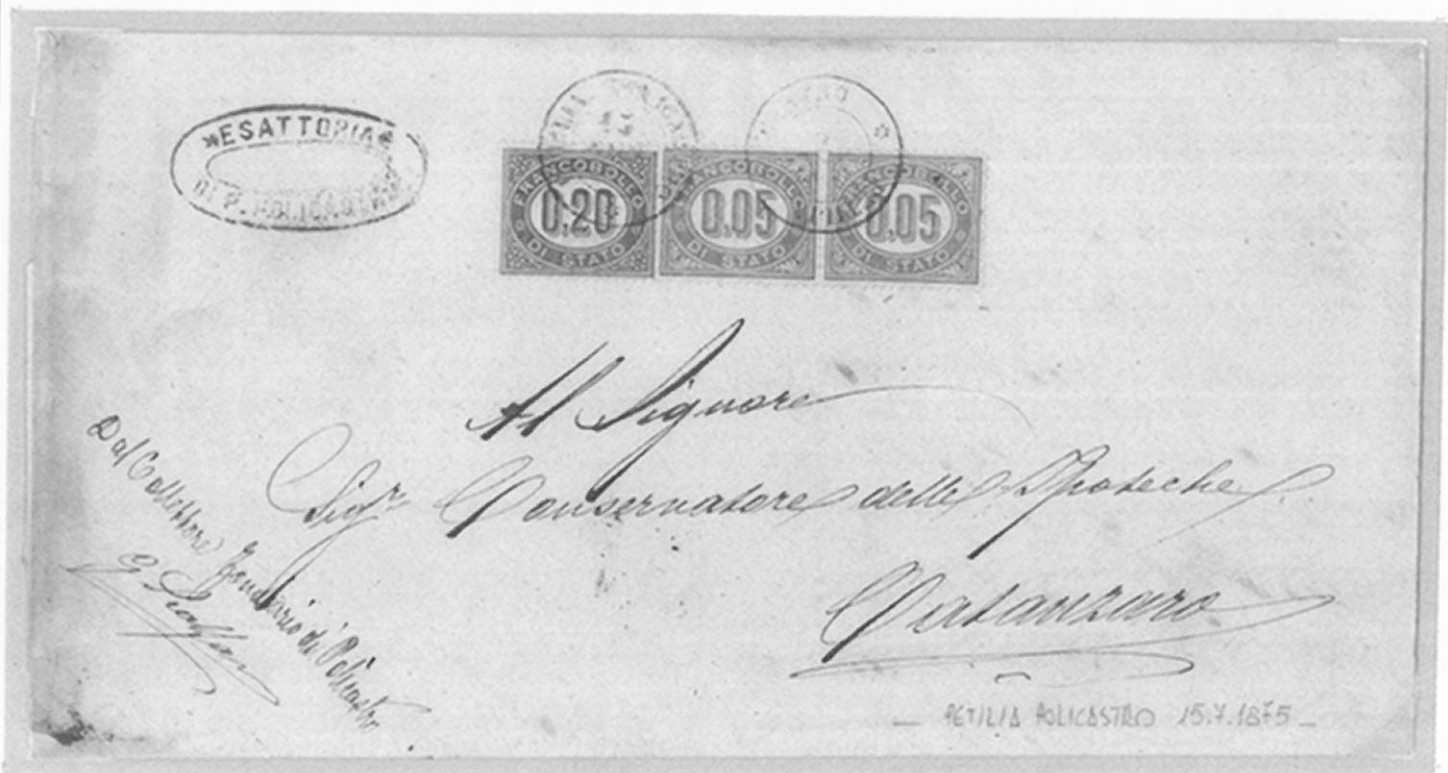 *ESATTORIA*
DI P. POLICASTRO
FRANCOBOLLO
0.20
DI STATO
FRANCOBOLLO
0.05
DI STATO
FRANCOBOLLO
0.05
DI STATO
Al Signore
Sigr Conservatore delle Ipoteche
Catanzaro
Dal Collettore Fondiario di Policastro
PETILIA POLICASTRO 15.7.1875